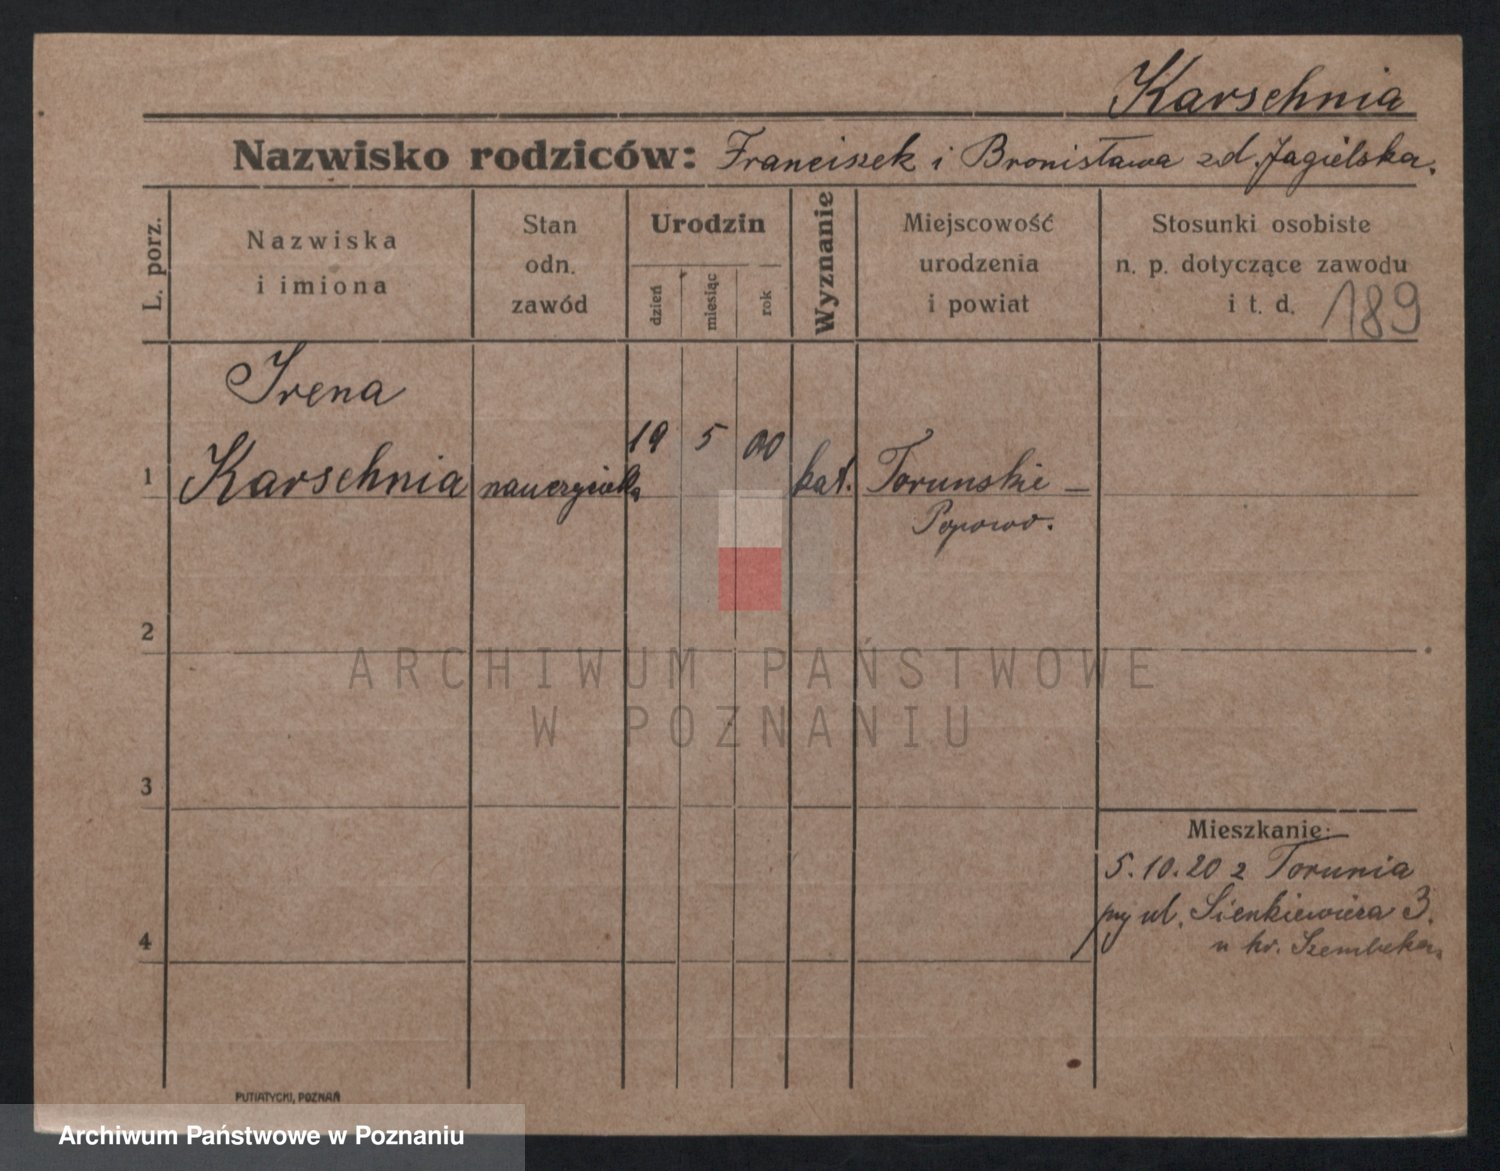 Karschnia
Nazwisko rodziców: Franciszek i Bronisława zd. Jagielska.
L. porz.
Nazwiska
i imiona
Stan
odn.
zawód
Urodzin
dzień
miesiąc
rok
Wyznanie
Miejscowość
urodzenia
i powiat
Stosunki osobiste
n. p. dotyczące zawodu
i t. d.
189
Irena
1 Karschnia
19 5 00
kat. Torunskie -
Popowo.
2
3
4
ARCHIWUM PAŃSTWOWE
W POZNANIU
Mieszkanie:
5.10.20 z Torunia
ul. Sienkiewicza 3.
u hr. Szembeka.
PUTIATYCKI, POZNAŃ
Archiwum Państwowe w Poznaniu